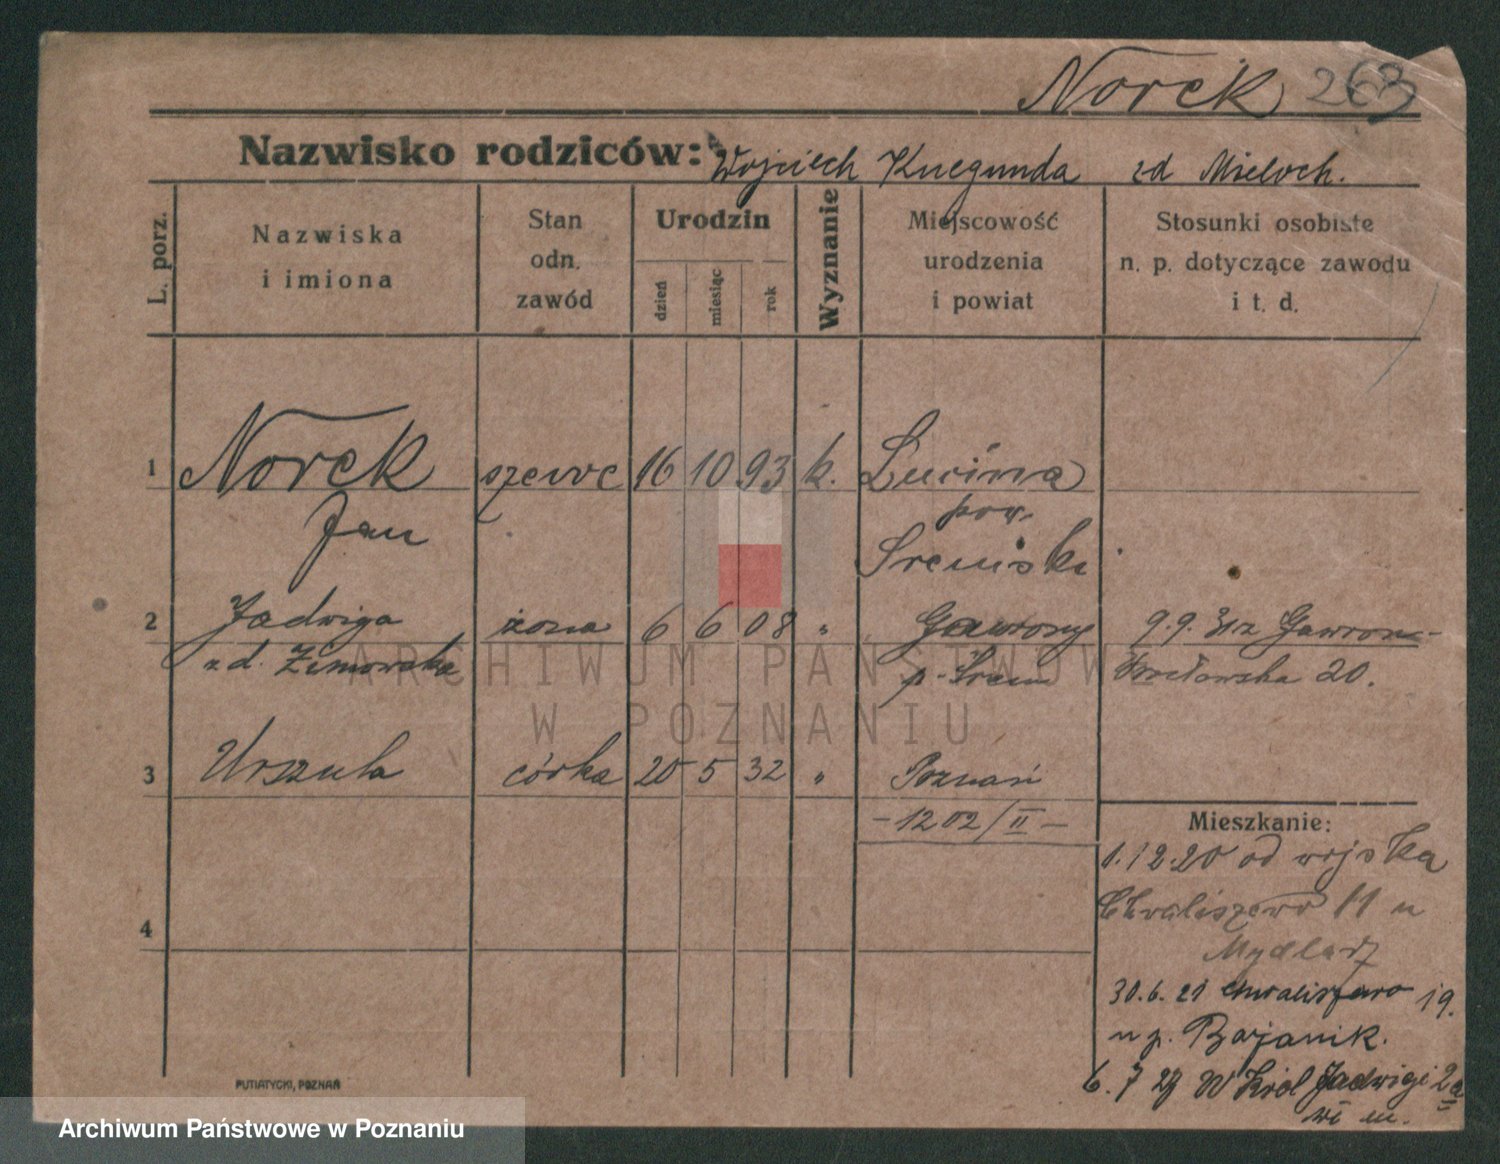 Norek 263
Nazwisko rodziców: Wojciech Kunegunda zd Mieloch.
L. porz.
Nazwiska
i imiona
Stan
odn.
zawód
Urodzin
dzień
miesiąc
rok
Wyznanie
Miejscowość
urodzenia
i powiat
Stosunki osobiste
n. p. dotyczące zawodu
i t. d.
1 Norek szewc 16 10 93 k. Luciny
Jan pow.
Śremski
2 Jadwiga żona 6 6 08 " Gawrony 9.9.31 z Gawron-
zd. Zimowska p. Śrem 20.
3 Urszula córka 20 5 32 " Poznań
-1202/II-
Mieszkanie:
1.12.20 od wojska
Chwaliszewo 11 u
Mydlarz
4
30.6.21 Chwaliszewo 19.
u p. Bojanik.
6. 7 27 W Król Jadwigi 2a
m.
PUTIATYCKI, POZNAŃ
ARCHIWUM PAŃSTWOWE
W POZNANIU
Archiwum Państwowe w Poznaniu